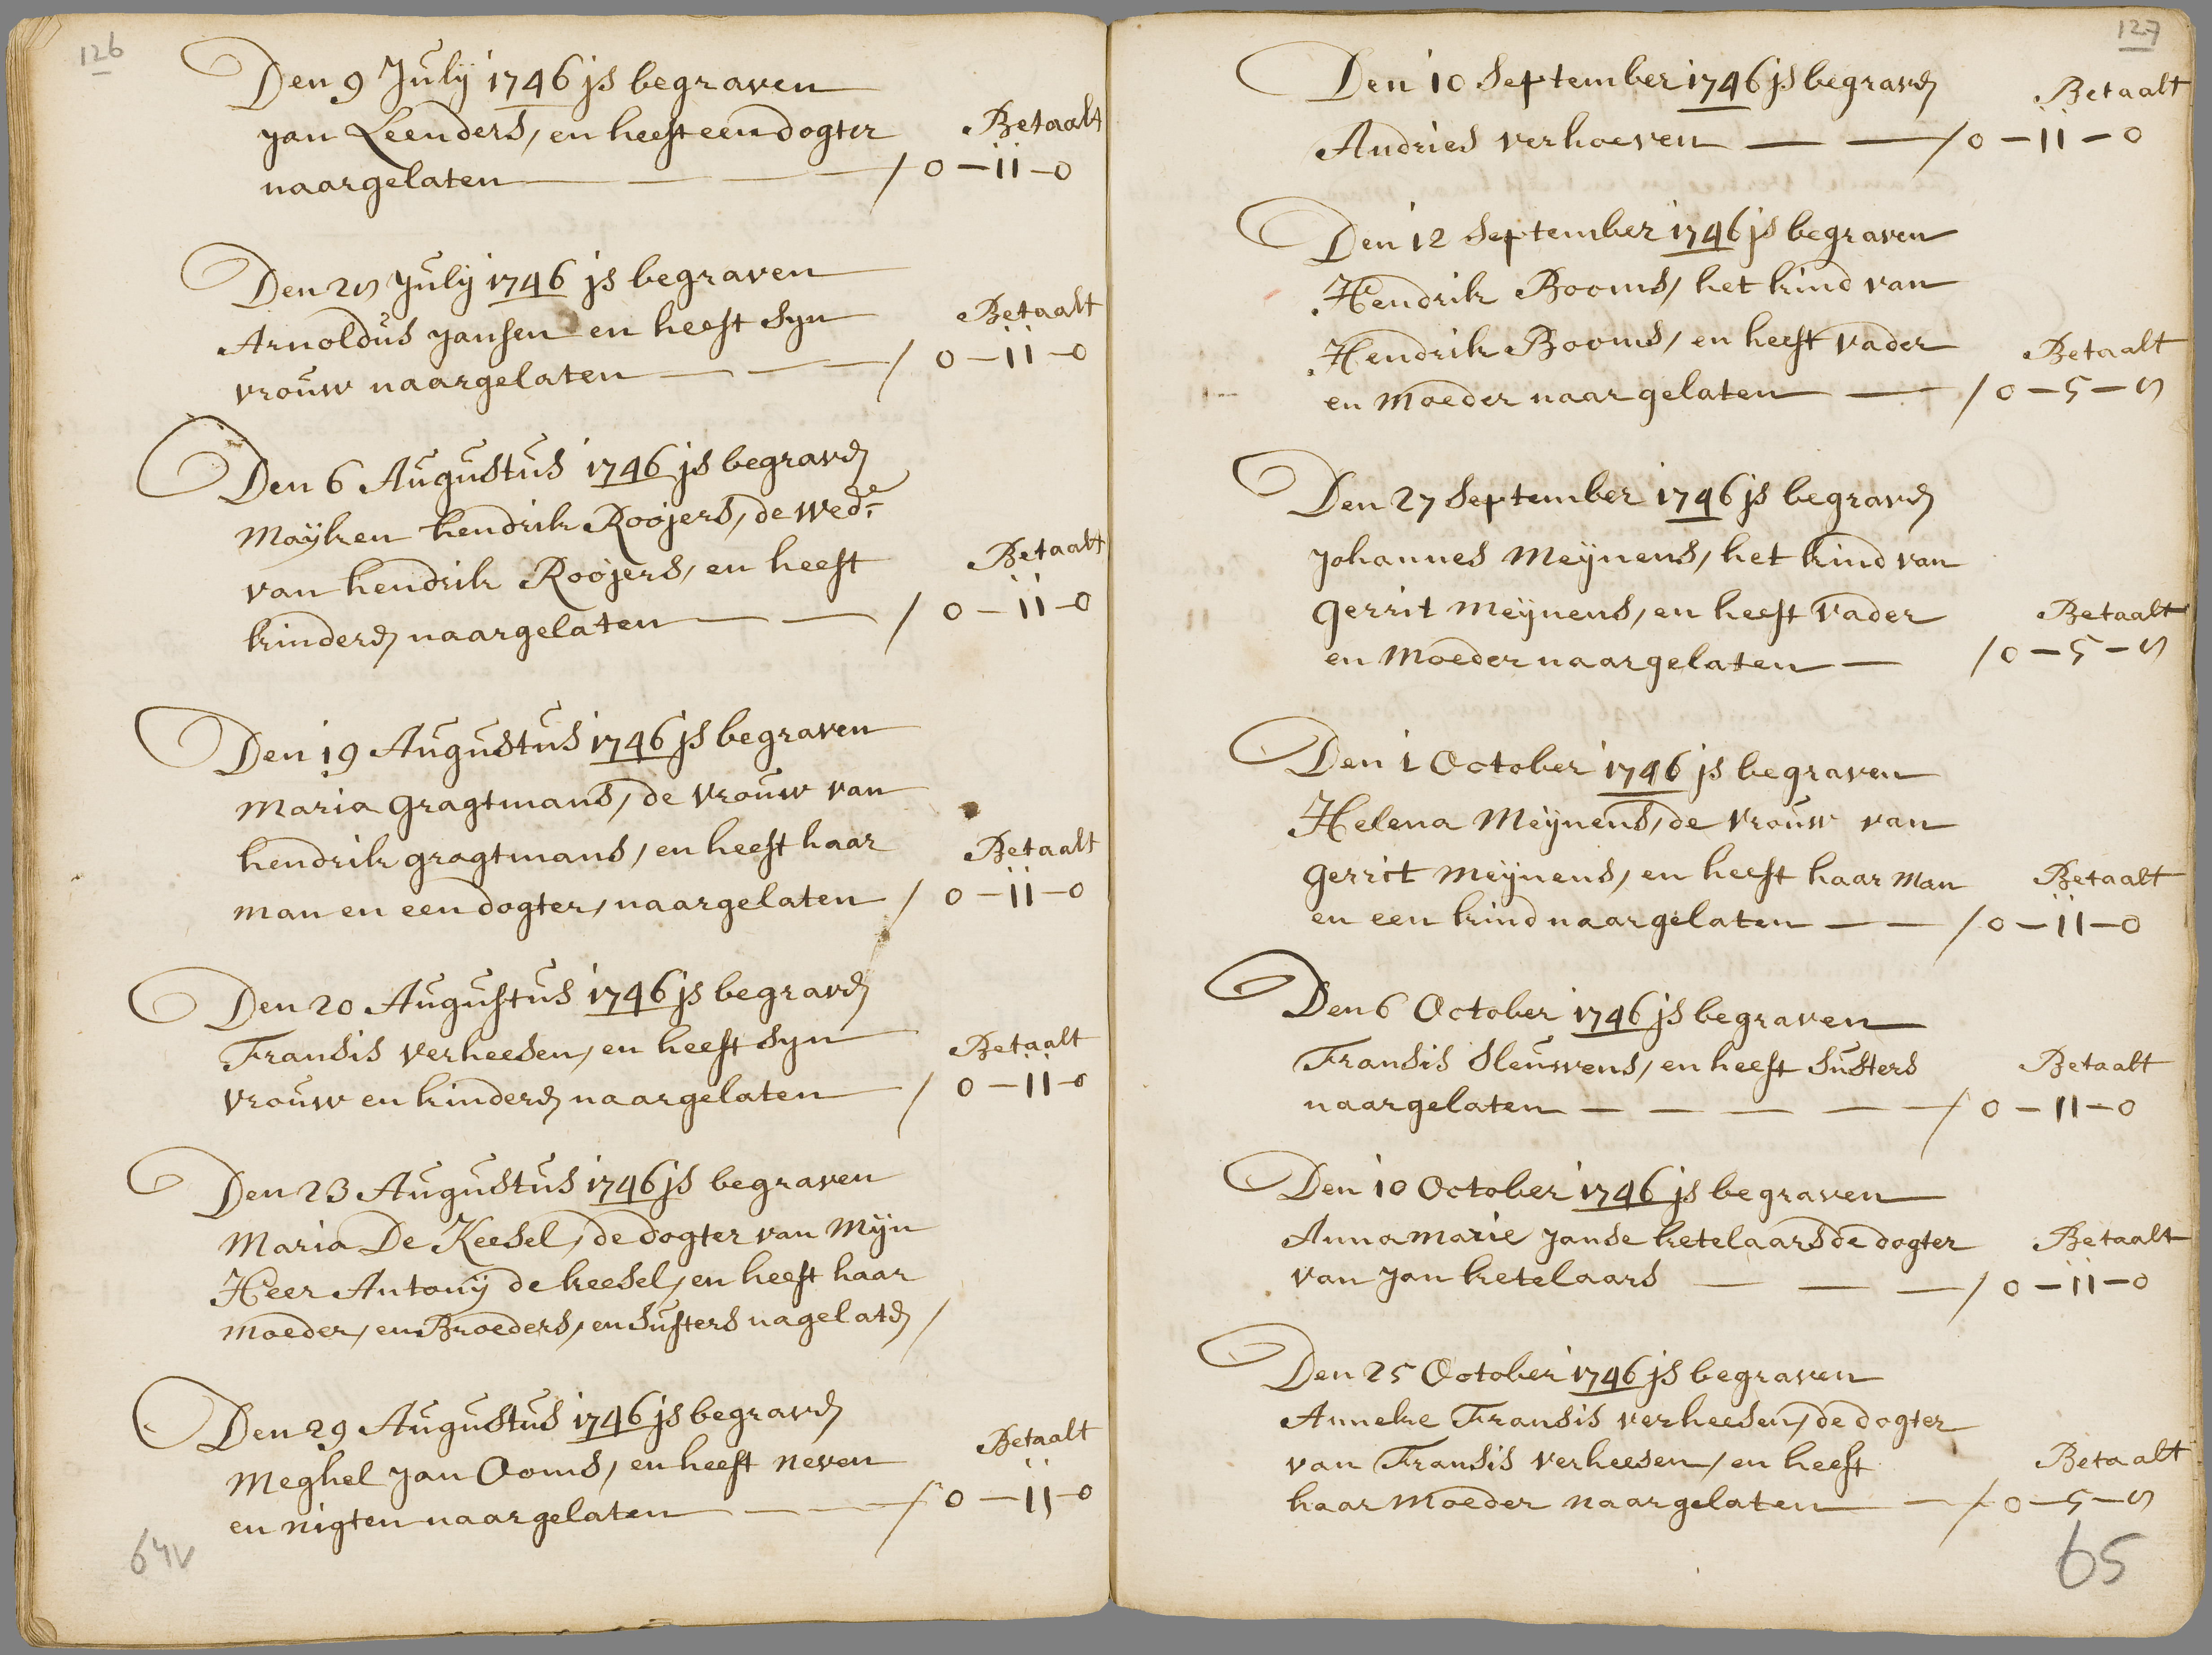 126
Den 9 Julÿ 1746 js begraven
Jan Leenders, en heeft een dogter Betaalt
naargelaten — — — / 0 – 11 – 0
Den 2⟨⟩ Julÿ 1746 js begraven
Arnoldus Jansen en heeft syn Betaalt
vrouw naargelaten — — — / 0 – 11 – 0
Den 6 Augustus 1746 js begraven
Mayken hendrik Roojers, de wed.e
van hendrik Roojers, en heeft Betaalt
kinderen naargelaten — — / 0 – 11 – 0
Den 19 Augustus 1746 js begraven
Maria gragtmans, de vrouw van
hendrik gragtmans, en heeft haar Betaalt
man en een dogter, naargelaten / 0 – 11 – 0
Den 20 Augustus 1746 js begraven
Fransis verheesen, en heeft syn Betaalt
vrouw en kinderen naargelaten / 0 – 11 – 0
Den 23 Augustus 1746 js begraven
Maria De Keesel, de dogter van Mijn
Heer Antonÿ de keesel, en heeft haar
moeder, en Broeders, en Susters nagelaten /
Den 29 Augustus 1746 js begraven
Meghel Jan Ooms, en heeft neven Betaalt
en nigten naargelaten — — — / 0 – 11 – 0
64v
127
Den 10 September 1746 js begraven Betaalt
Andries verhoeven — — / 0 – 11 – 0
Den 12 September 1746 js begraven
Hendrik Booms, het kind van
Hendrik Booms, en heeft vader Betaalt
en Moeder naargelaten — / 0 – 5 –
Den 27 September 1746 js begraven
Johannes Meÿnens, het kind van
gerrit Meÿnens, en heeft vader Betaalt
en Moeder naargelaten — / 0 – 5 –
Den 1 October 1746 js begraven
Helena Meÿnens, de vrouw van
gerrit Meÿnens, en heeft haar Man Betaalt
en een kind naargelaten — — / 0 – 11 – 0
Den 6 October 1746 js begraven
Fransis Sleuwens, en heeft Susters Betaalt
naargelaten — — — — / 0 – 11 – 0
Den 10 October 1746 js begraven
Anna marie Janse ketelaars de dogter Betaalt
van Jan ketelaars — — — / 0 – 11 – 0
Den 25 October 1746 js begraven
Anneke Fransis verheesen, de dogter
van Fransis verheesen, en heeft Betaalt
haar Moeder naargelaten — / 0 – 5 –
65